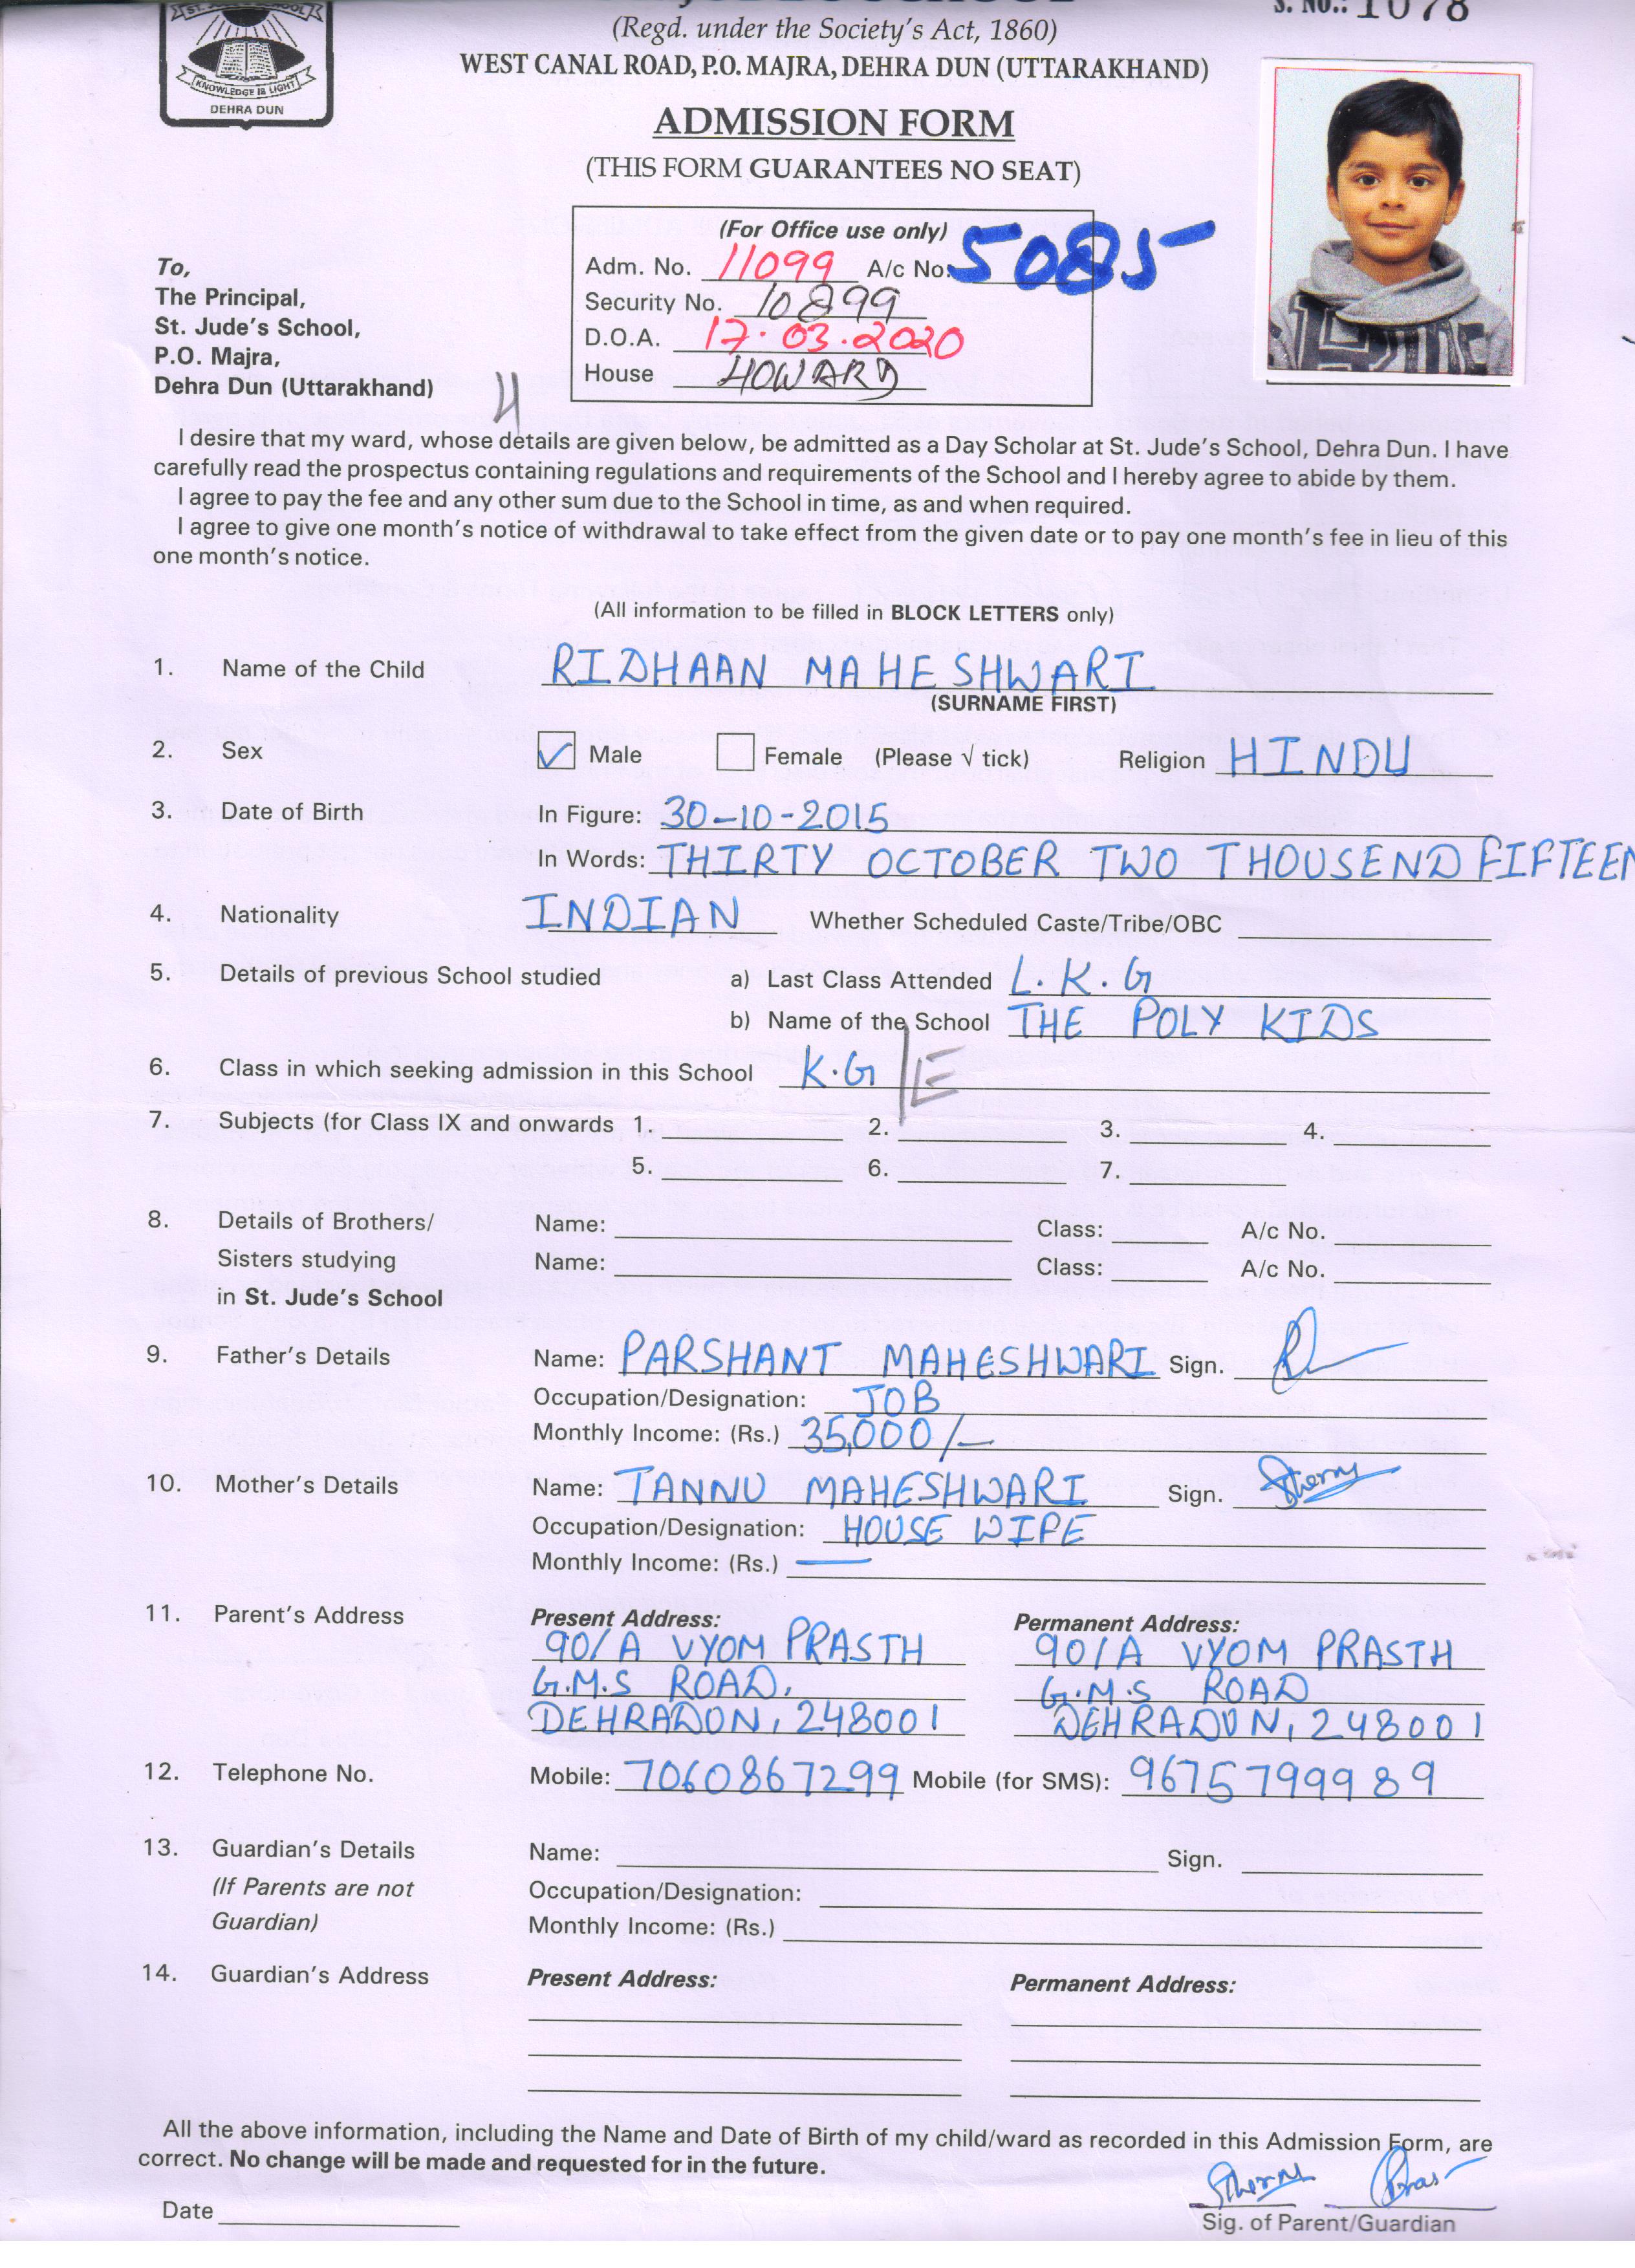 ST. JUDE'S SCHOOL
KNOWLEDGE IS LIGHT
DEHRA DUN
S. No.: 1078
(Regd. under the Society's Act, 1860)
WEST CANAL ROAD, P.O. MAJRA, DEHRA DUN (UTTARAKHAND)
ADMISSION FORM
(THIS FORM GUARANTEES NO SEAT)
(For Office use only)
Adm. No. 11099 A/c No. 5085
Security No. 10899
D.O.A. 17.03.2020
House HOWARD
To,
The Principal,
St. Jude's School,
P.O. Majra,
Dehra Dun (Uttarakhand)
I desire that my ward, whose details are given below, be admitted as a Day Scholar at St. Jude's School, Dehra Dun. I have
carefully read the prospectus containing regulations and requirements of the School and I hereby agree to abide by them.
I agree to pay the fee and any other sum due to the School in time, as and when required.
I agree to give one month's notice of withdrawal to take effect from the given date or to pay one month's fee in lieu of this
one month's notice.
(All information to be filled in BLOCK LETTERS only)
1. Name of the Child RIDHAAN MAHESHWARI
(SURNAME FIRST)
2. Sex ✓ Male Female (Please √ tick) Religion HINDU
3. Date of Birth In Figure: 30-10-2015
In Words: THIRTY OCTOBER TWO THOUSEND FIFTEEN
4. Nationality INDIAN Whether Scheduled Caste/Tribe/OBC
5. Details of previous School studied a) Last Class Attended L.K.G
b) Name of the School THE POLY KIDS
6. Class in which seeking admission in this School K.G/E
7. Subjects (for Class IX and onwards 1. 2. 3. 4.
5. 6. 7.
8. Details of Brothers/ Name: Class: A/c No.
Sisters studying Name: Class: A/c No.
in St. Jude's School
9. Father's Details Name: PARSHANT MAHESHWARI Sign.
Occupation/Designation: JOB
Monthly Income: (Rs.) 35,000/-
10. Mother's Details Name: TANNU MAHESHWARI Sign.
Occupation/Designation: HOUSE WIPE
Monthly Income: (Rs.) —
11. Parent's Address Present Address: Permanent Address:
90/A VYOM PRASTH 90/A VYOM PRASTH
G.M.S ROAD, G.M.S ROAD
DEHRADUN, 248001 DEHRADUN, 248001
12. Telephone No. Mobile: 7060867299 Mobile (for SMS): 9675799989
13. Guardian's Details Name: Sign.
(If Parents are not Occupation/Designation:
Guardian) Monthly Income: (Rs.)
14. Guardian's Address Present Address: Permanent Address:
All the above information, including the Name and Date of Birth of my child/ward as recorded in this Admission Form, are
correct. No change will be made and requested for in the future.
Date
Sig. of Parent/Guardian